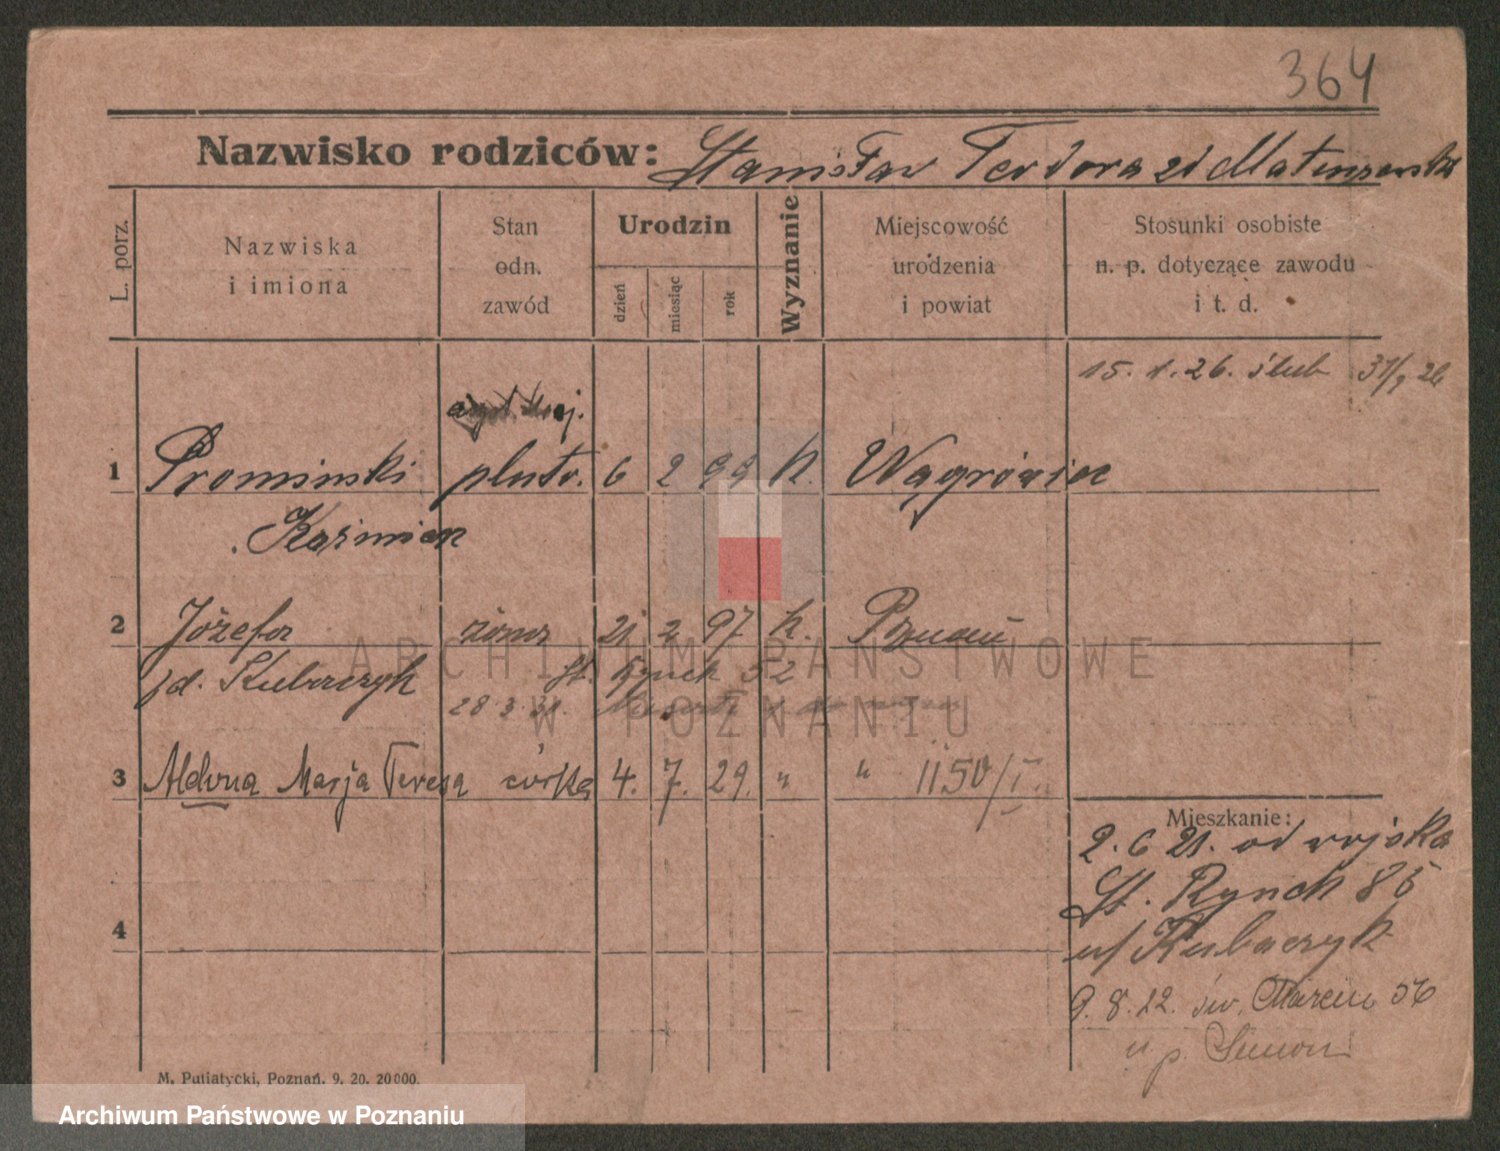 364
Nazwisko rodziców: Stanisław Teodora zd Matuszewska
L. porz.
Nazwiska
i imiona
Stan
odn.
zawód
Urodzin
dzień
miesiąc
rok
Wyznanie
Miejscowość
urodzenia
i powiat
Stosunki osobiste
n. p. dotyczące zawodu
i t. d.
15. 1. 26. ślub
1 Promiński plutr. 6 2 99 K. Wągrówiec
Kaźmierz
2 Józefa żona 21 2 97 K. Poznań
zd. Kubaczyk St. Rynek 52
28. 3. 31.
3 Aldona Marja Teresa córka 4. 7. 29. " " 1150/I.
Mieszkanie:
2. 6 21. od wojska
St. Rynek 85
u/ Kubaczyk
4
9. 8. 22. św. Marcin 56
u p. Simon
M. Putiatycki, Poznań. 9. 20. 20000.
ARCHIWUM PAŃSTWOWE
W POZNANIU
Archiwum Państwowe w Poznaniu